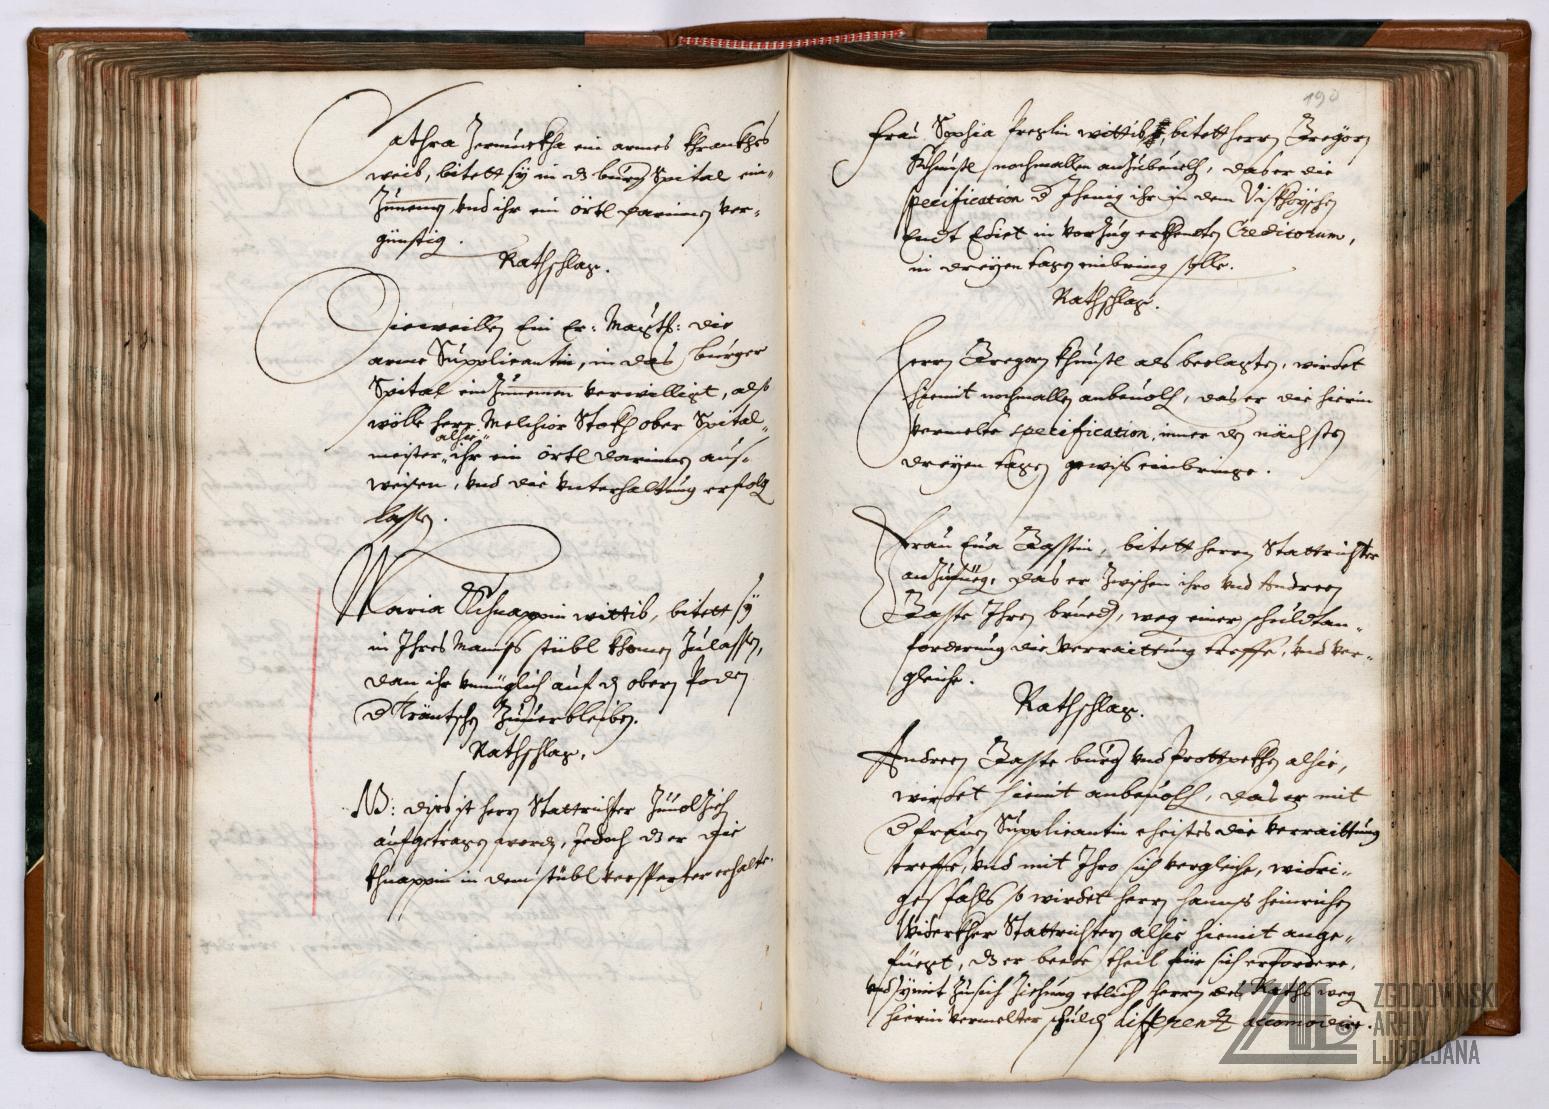 Cathra Jerniuckha ein armes khranckhes
weib, bitett sÿ in d burg Spital ein„
Zunemen, vnd ihr ein örtl darinnen ver„
günstig.
Rathschlag.
Dieweillen Ein Er: Magist: die
arme Supplicantin, in das burger
Spital ein Zunemen verwilliget, alß
wölle herr Melchior Stockh ober Spital„
meister alhie, ihr ein örtl darinnen auß„
weisen, vnd die vnterhaltung erfolg
lassen.
Maria Khnappin wittib, bitett sÿ
in Ihres Manß stübl khomen Zulassen,
dan ihr vnmüglich auf d obern Poden
Zuuerbleiben.
Rathschlag.
NB: dises ist herrn Stattrichter Zuuolziehen
aufgetragen worden, Jedoch d er die
khnappin in dem stübl erhalte.
190
Frau Sophia wittib, bitett herrn Gregorn
Khunstl nochmallen anzubeuelh, das er die
specification d Ihenig ihr in dem
Endt Edict in vorzug erkhenten Creditorum,
in dreÿen tagen einbring solle.
Rathschlag.
Herrn Gregorn Khunstl als beclagten, wirdet
hiemit nochmallen anbeuolh, das er die hierin
vermelte specification, inner den nächsten
dreÿen tagen gewiss einbringe.
Frau Eua Gastin, bitett herrn Stattrichter
anzufüeg, das er Zwischen ihro vnd Andreen
Gaste Ihren brueder, weg einer schuldtan„
forderung die verraittung treffe, vnd ver„
gleiche.
Rathschlag.
Andreen Gaste burg vnd Prottpekhen alhie,
wirdet hiemit anbeuolh, das er mit
d frauen Supplicantin ehistes die verraittung
treffe, vnd mit Ihro sich vergleiche, widri„
ges fahls so wirdet herrn Hannß Heinrichen
Widerkher Stattrichtern alhie hiemit ange„
füegt, d er beede theil für sich erfordere,
vnd mit Zusich Ziehung etlich herrn des Raths weg
hierin vermelter schuld differentz accomodire.
ZAL
ZGODOVINSKI
ARHIV
LJUBLJANA